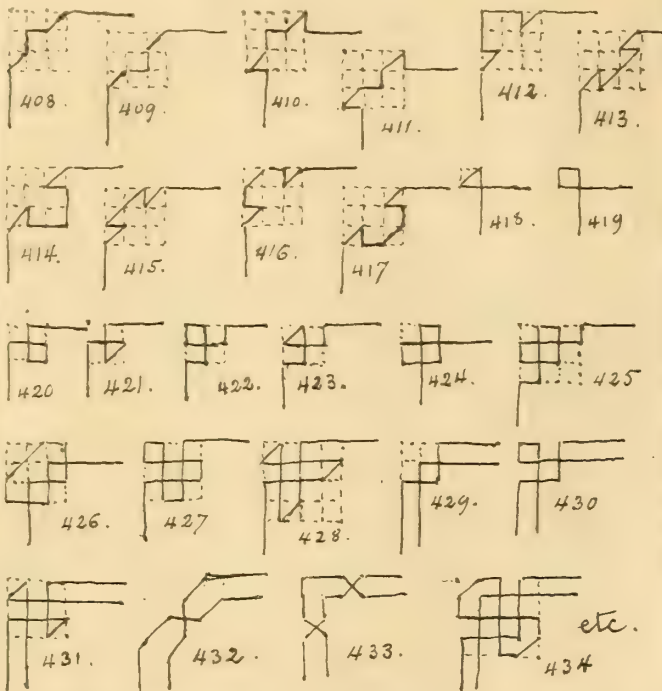 408. 409. 410. 411. 412. 413.
414. 415. 416. 417 418. 419
420 421. 422. 423. 424. 425
426. 427 428. 429. 430
431. 432. 433. 434 etc.